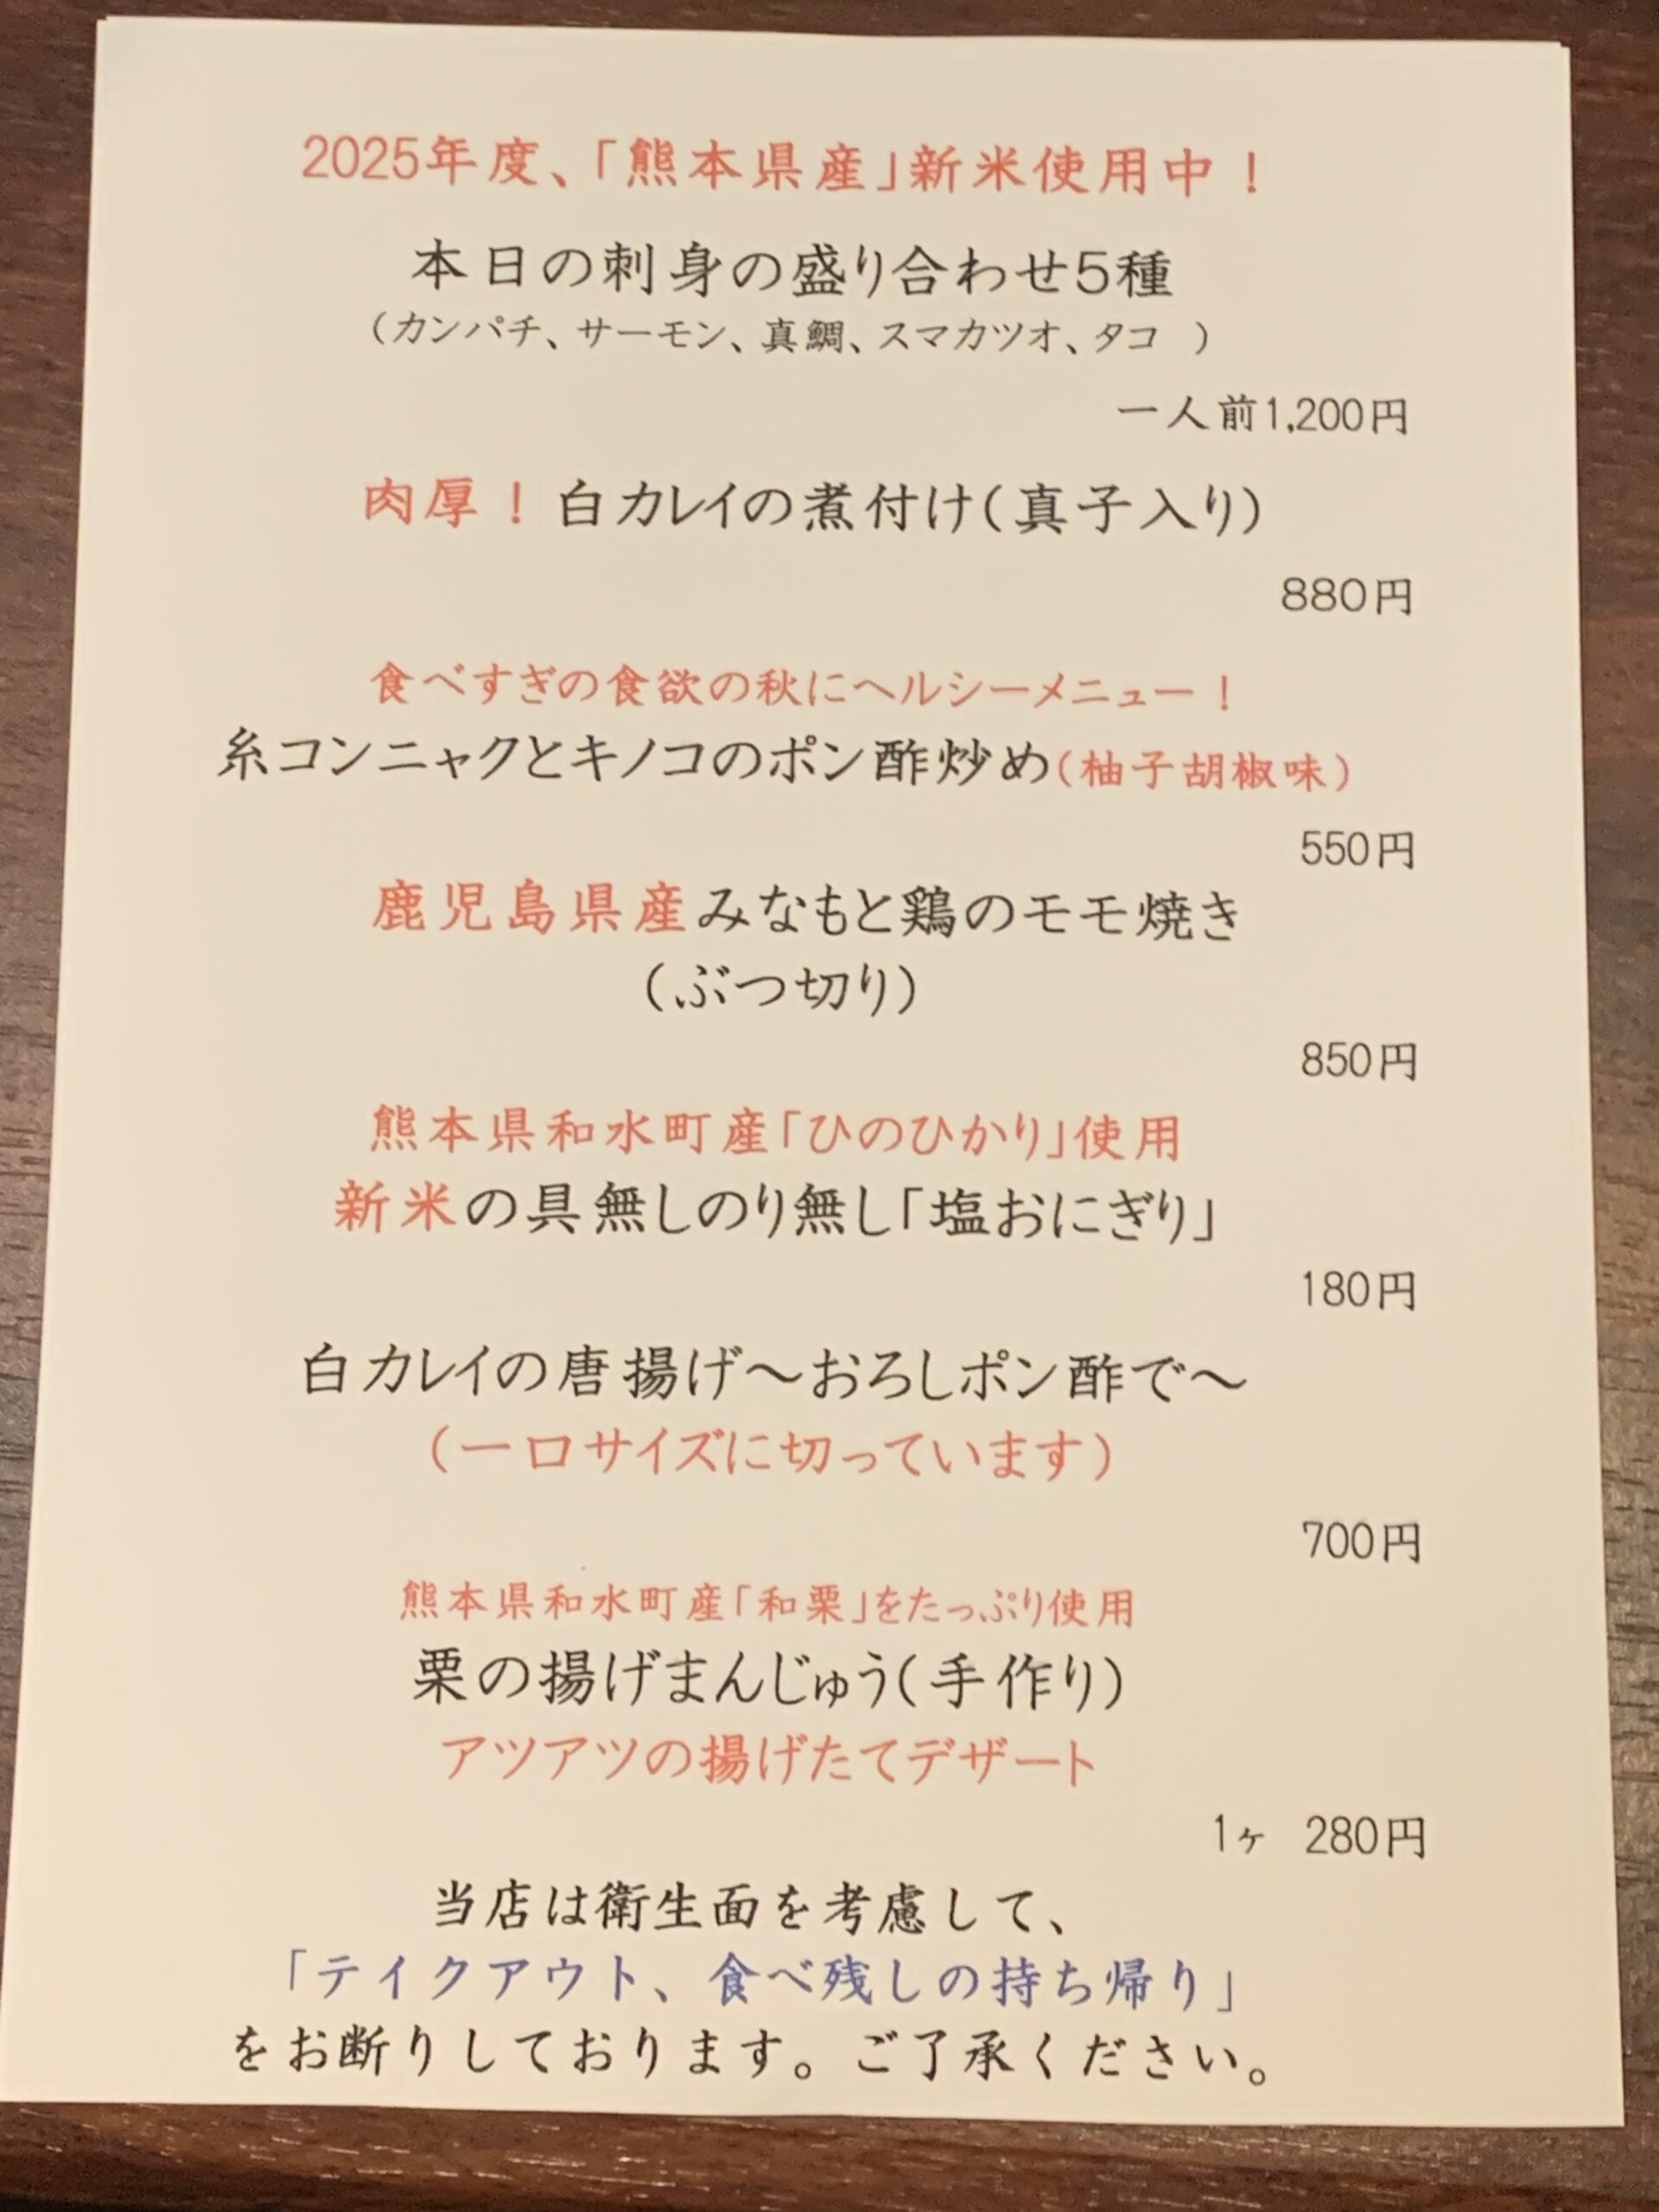 2025年度、「熊本県産」新米使用中！
本日の刺身の盛り合わせ5種
（カンパチ、サーモン、真鯛、スマカツオ、タコ　）
一人前1,200円
肉厚！白カレイの煮付け（真子入り）
880円
食べすぎの食欲の秋にヘルシーメニュー！
糸コンニャクとキノコのポン酢炒め（柚子胡椒味）
550円
鹿児島県産みなもと鶏のモモ焼き
（ぶつ切り）
850円
熊本県和水町産「ひのひかり」使用
新米の具無しのり無し「塩おにぎり」
180円
白カレイの唐揚げ～おろしポン酢で～
（一口サイズに切っています）
700円
熊本県和水町産「和栗」をたっぷり使用
栗の揚げまんじゅう（手作り）
アツアツの揚げたてデザート
1ヶ　280円
当店は衛生面を考慮して、
「テイクアウト、食べ残しの持ち帰り」
をお断りしております。ご了承ください。